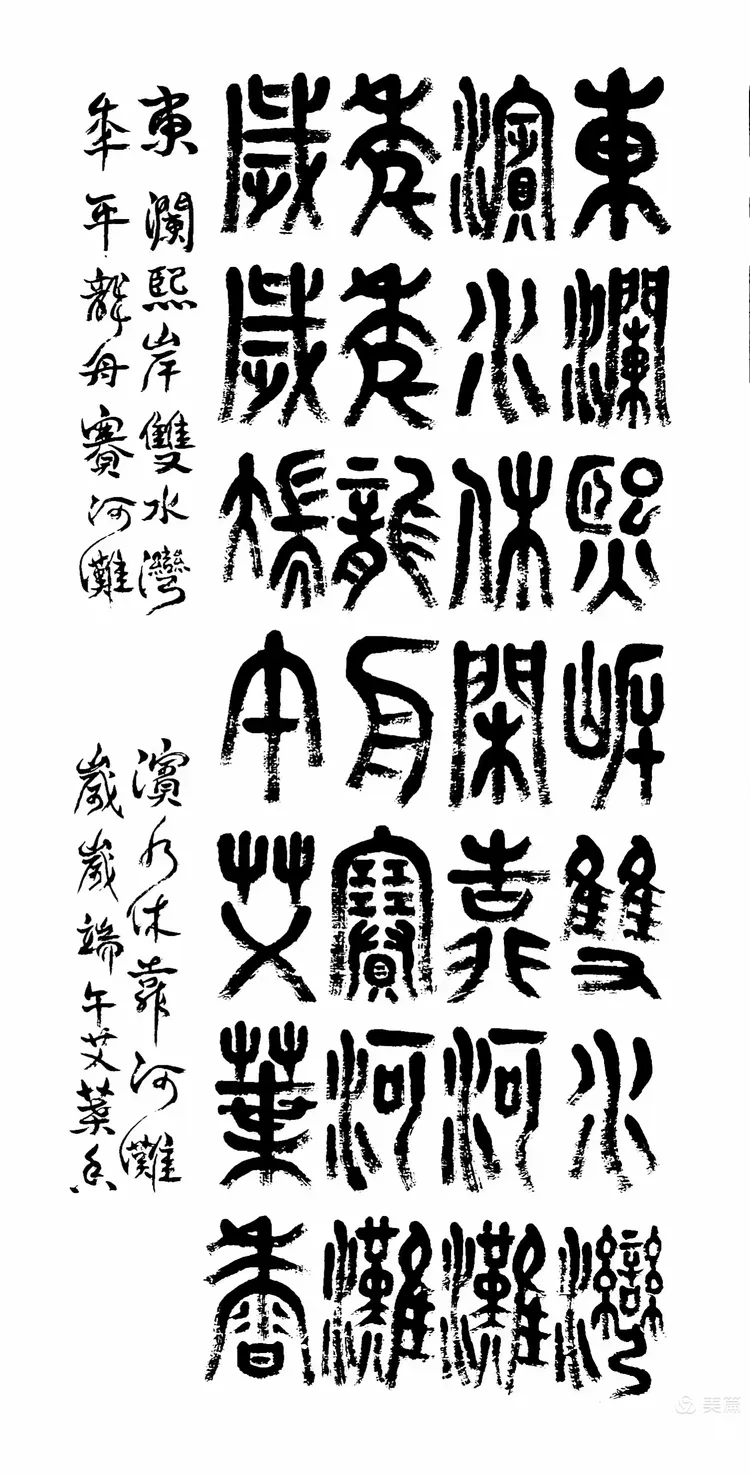 東瀾熙岸雙水灣
濱水休閑靠河灘
年年龍舟賽河灘
歲歲端午艾葉香
東瀾熙岸雙水灣 濱水休靠河灘
年年龍舟賽河灘 歲歲端午艾葉香
美篇